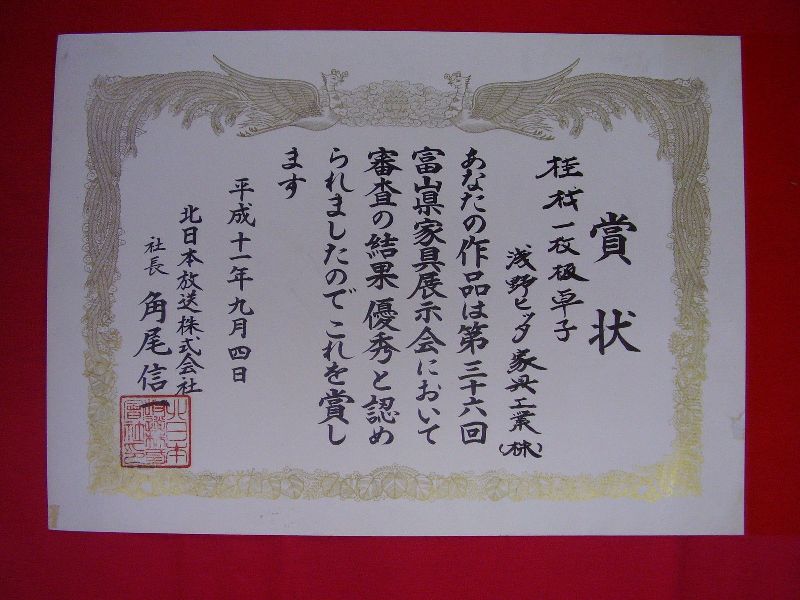 賞状
桂材一枚板卓子
浅野ヒッタ家具工業(株)
あなたの作品は第三十六回
富山県家具展示会において
審査の結果優秀と認め
られましたのでこれを賞し
ます
平成十一年九月四日
北日本放送株式会社
社長 角尾信一